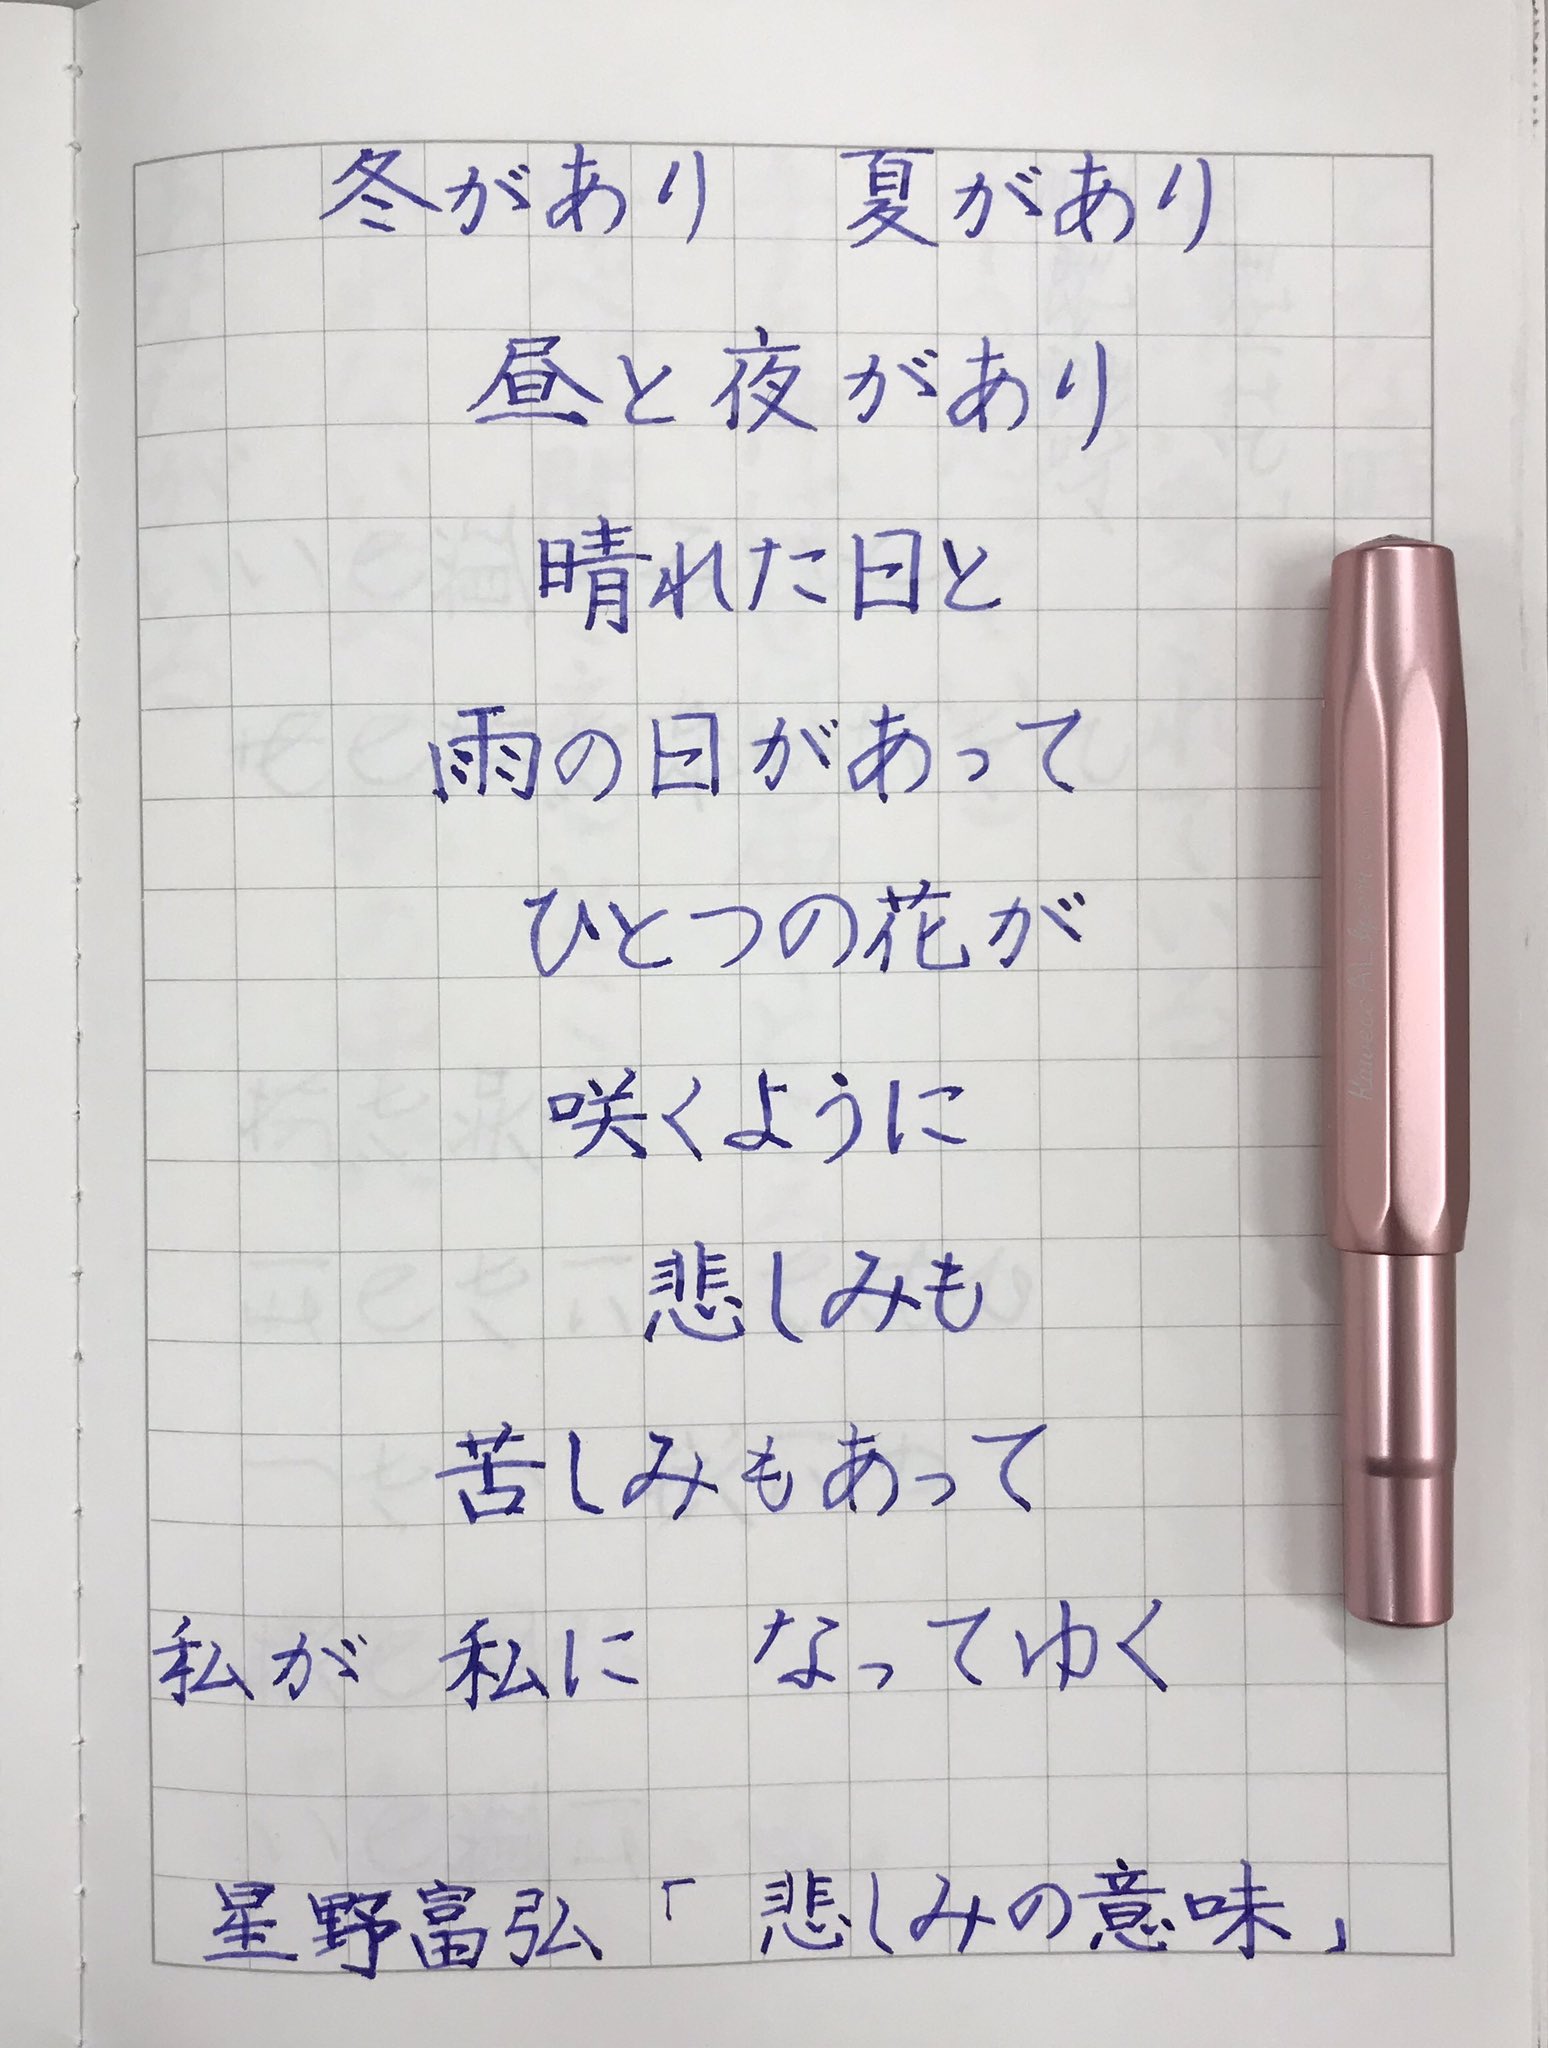 冬があり　夏があり
昼と夜があり
晴れた日と
雨の日があって
ひとつの花が
咲くように
悲しみも
苦しみもあって
私が　私に　なってゆく
星野富弘「悲しみの意味」
Kaweco AL Sport